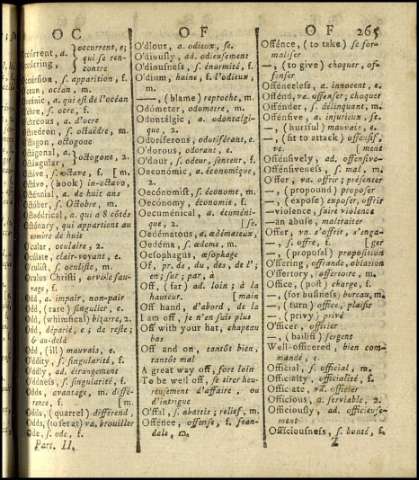 O C
O F
O F 265
occurrent, e;
qui se rencontre
apparition, f.
océan, m.
a. qui est de l'océan
a. ocre, f.
a. d'ocre
f. octaèdre, m.
octogone
octogone, 2.
f. octave, f. [m.
(book) in-octavo,
a. de huit ans
f. Octobre, m.
a. qui a 8 côtés
qui appartient au
nombre de huit
Ocular, oculaire, 2.
Oculate, clair-voyant, e.
Oculist, f. oculiste, m.
Oculus Christi, orvale sauvage, f.
Odd, a. impair, non-pair
(rare) singulier, e.
Odd, (whimsical) bizarre, 2.
Odd, déparié, e; de reste;
& au-delà
Odd, (ill) mauvais, e.
Oddity, f. singularité, f.
Oddly, ad. étrangement
Oddness, f. singularité, f.
Odds, avantage, m. différence, f. [m.
Odds, (quarrel) différend,
Odds, (to set at) va. brouiller
Ode, f. ode, f.
Part. II.
O'dious, a. odieux, se.
O'diously, ad. odieusement
O'diousness, f. énormité, f.
O'dium, haine, f. l'odieux,
m.
—, (blame) reproche, m.
Odómeter, odometre, m.
Odontálgic, a. odontalgique, 2.
Odoríferous, odoriférant, e.
O'dorous, odorant, e.
O'dour, f. odeur, senteur, f.
Oeconómic, a. économique,
2.
Oecónomist, f. économe, m.
Oecónomy, économie, f.
Oecuménical, a. écuménique, 2. [se.
Oedématous, a. œdémateux,
Oedéma, f. œdeme, m.
Oesophagus, œsophage
Of, pr. de, du, des, de l';
en; sur; par, à
Off, (far) ad. loin; à la
hauteur. [main
Off hand, d'abord, de la
I am off, je n'en suis plus
Off with your hat, chapeau
bas
Off and on, tantôt bien,
tantôt mal
A great way off, fort loin
To be well off, se tirer heureusement d'affaire, ou
d'intrigue
O'ffal, f. abattis; relief, m.
Offénce, offense, f. scandale, m.
Offénce, (to take) se formaliser
—, (to give) choquer, offenser
Offénceless, a. innocent, e.
Offénd, va. offenser, choquer
Offénder, f. délinquant, m.
Offénsive, a. injurieux, se.
—, (hurtful) mauvais, e.
—, (fit to attack) offensif,
ve. [ment
Offénsively, ad. offensive-
Offénsiveness, f. mal, m.
Offer, va. offrir; présenter
—, (propound) proposer
—, (expose) exposer, offrir
—violence, faire violence
—an abuse, maltraiter
Offer, vn. s'offrir, s'enga-
—, f. offre, f. [ger
—, (proposal) proposition
Offering, offrande, oblation
Offertory, offertoire, m.
Office, (post) charge, f.
—, (for business) bureau, m.
—, (turn) office, plaisir
—, (privy) privé
Officer, officier
—, (bailiff) sergent
Well-officered, bien commandé, e.
Official, f. official, m.
Officialty, officialité, f.
Officiate, va. officier
Officious, a. serviable, 2.
Officiously, ad. officieusement
Officiousness, f. bonté, f.
Z